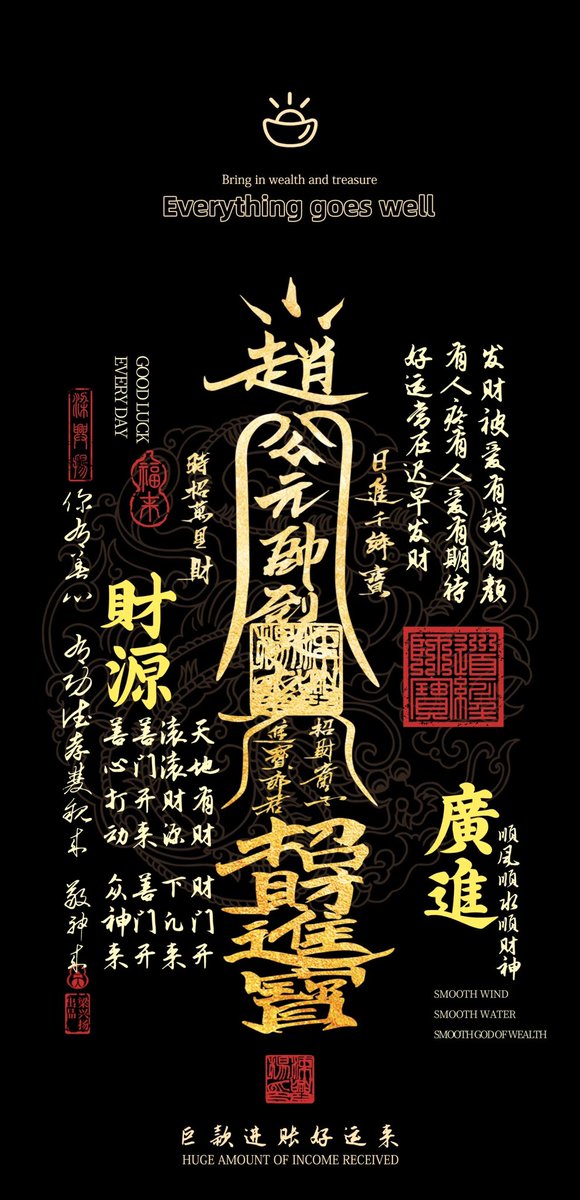 Bring in wealth and treasure
Everything goes well
趙公元帥到
发财被爱有钱有颜
有人疼有人爱有期待
好运常在迟早发财
日進千鄉寶
時招萬里財
GOOD LUCK
EVERY DAY
福来
梁興揚
财源
招財童子
進寶郎君
天地有财 财门开
滚滚财源 下凡来
善门开来 善门开
善心打动 众神来
你有善心 有功德孝双親来 敬神来
梁兴扬
出品
廣進
順風順水順財神
招財進寶
SMOOTH WIND
SMOOTH WATER
SMOOTH GOD OF WEALTH
巨款进账好运来
HUGE AMOUNT OF INCOME RECEIVED